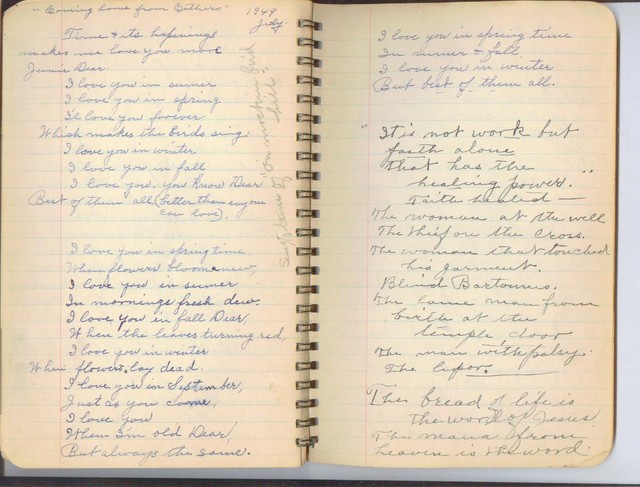 "Coming home from Githers" 1949
July.
Time & its hapenings
makes me love you more
Junie Dear.
I love you in sumer
I love you in spring
I'll love you forever
Which makes the birds sing
I love you in winter
I love you in fall
I love you, you know Dear
Best of them all (better than anyone
can love).
I love you in spring time
When flowers bloom anew,
I love you in sumer
In mornings fresh dew.
I love you in fall Dear,
When the leaves turning red,
I love you in winter
When flowers, lay dead.
I love you in September,
Just as you came,
I love you
When I'm old Dear,
But always the same.
Sung tune of "On mockin bird
hill".
I love you in spring time
In sumer & fall
I love you in winter
But best of them all.
"It is not work but
faith alone
That has the
healing power."
Faith healed —
The woman at the well
The thief on the Cross.
The woman that touched
his garment.
Blind Bartomus.
The lame man from
birth at the
temple door
The man with palsy.
The lepor.
The bread of life is
the word of Jesus
The mana from
heaven is the word.